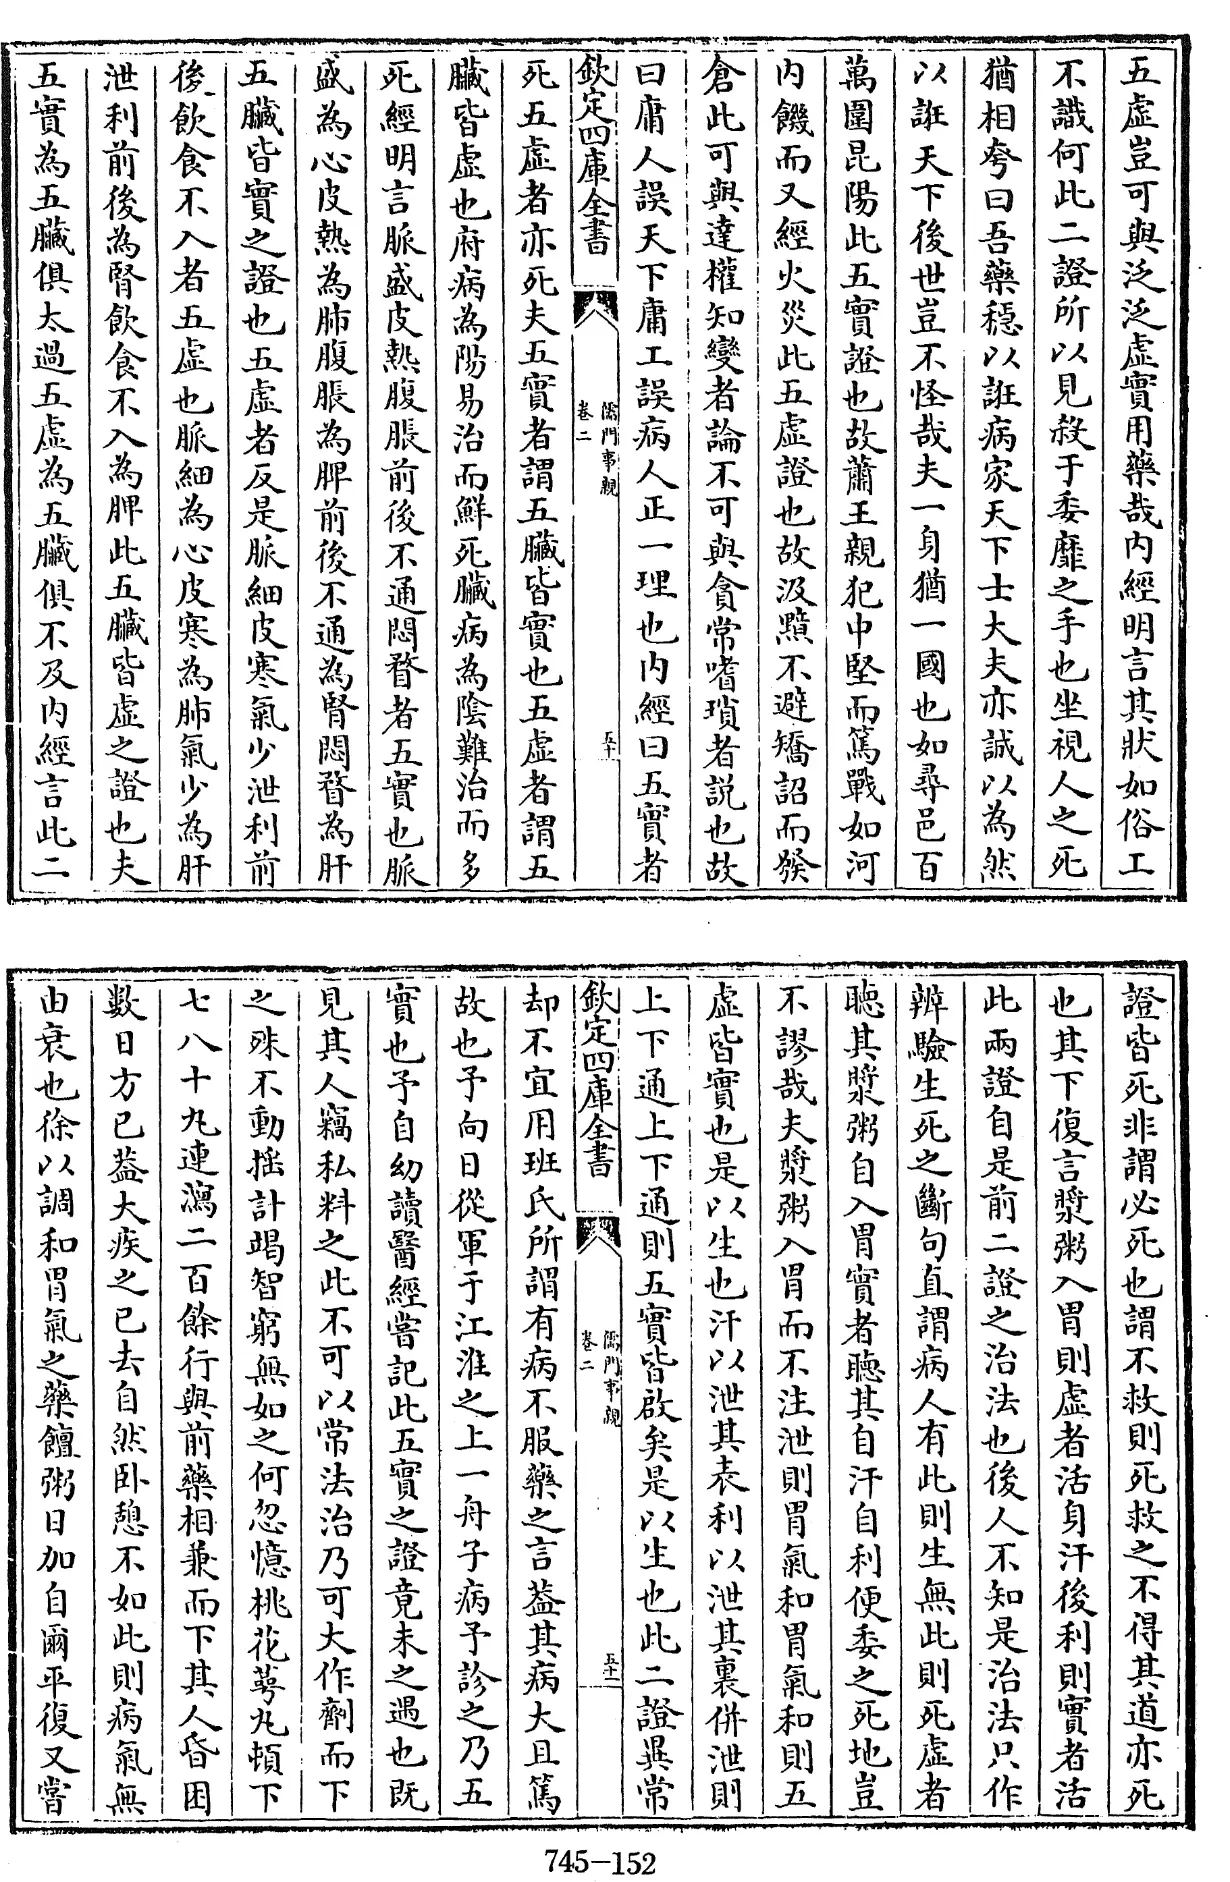 五虛豈可與泛泛虛實用藥哉內經明言其狀如俗工
不識何此二證所以見殺于委靡之手也坐視人之死
猶相夸曰吾藥穩以誑病家天下士大夫亦誠以為然
以誑天下後世豈不怪哉夫一身猶一國也如尋邑百
萬圍昆陽此五實證也故蕭王親犯中堅而篤戰如河
內饑而又經火災此五虛證也故汲黯不避矯詔而發
倉此可與達權知變者論不可與貪常嗜瑣者說也故
曰庸人誤天下庸工誤病人正一理也內經曰五實者
欽定四庫全書
儒門事親
卷二
五十
死五虛者亦死夫五實者謂五臟皆實也五虛者謂五
臟皆虛也府病為陽易治而鮮死臟病為陰難治而多
死經明言脈盛皮熱腹脹前後不通悶瞀者五實也脈
盛為心皮熱為肺腹脹為脾前後不通為腎悶瞀為肝
五臟皆實之證也五虛者反是脈細皮寒氣少泄利前
後飲食不入者五虛也脈細為心皮寒為肺氣少為肝
泄利前後為腎飲食不入為脾此五臟皆虛之證也夫
五實為五臟俱太過五虛為五臟俱不及內經言此二
證皆死非謂必死也謂不救則死救之不得其道亦死
也其下復言漿粥入胃則虛者活身汗後利則實者活
此兩證自是前二證之治法也後人不知是治法只作
辨驗生死之斷句直謂病人有此則生無此則死虛者
聽其漿粥自入胃實者聽其自汗自利便委之死地豈
不謬哉夫漿粥入胃而不注泄則胃氣和胃氣和則五
虛皆實也是以生也汗以泄其表利以泄其裏併泄則
上下通上下通則五實皆啟矣是以生也此二證異常
欽定四庫全書
儒門事親
卷二
五十一
却不宜用班氏所謂有病不服藥之言蓋其病大且篤
故也予向日從軍于江淮之上一舟子病予診之乃五
實也予自幼讀醫經嘗記此五實之證竟未之遇也既
見其人竊私料之此不可以常法治乃可大作劑而下
之殊不動搖計竭智窮無如之何忽憶桃花萼丸頓下
七八十丸連瀉二百餘行與前藥相兼而下其人昏困
數日方已蓋大疾之已去自然臥憩不如此則病氣無
由衰也徐以調和胃氣之藥饘粥日加自爾平復又嘗
745-152